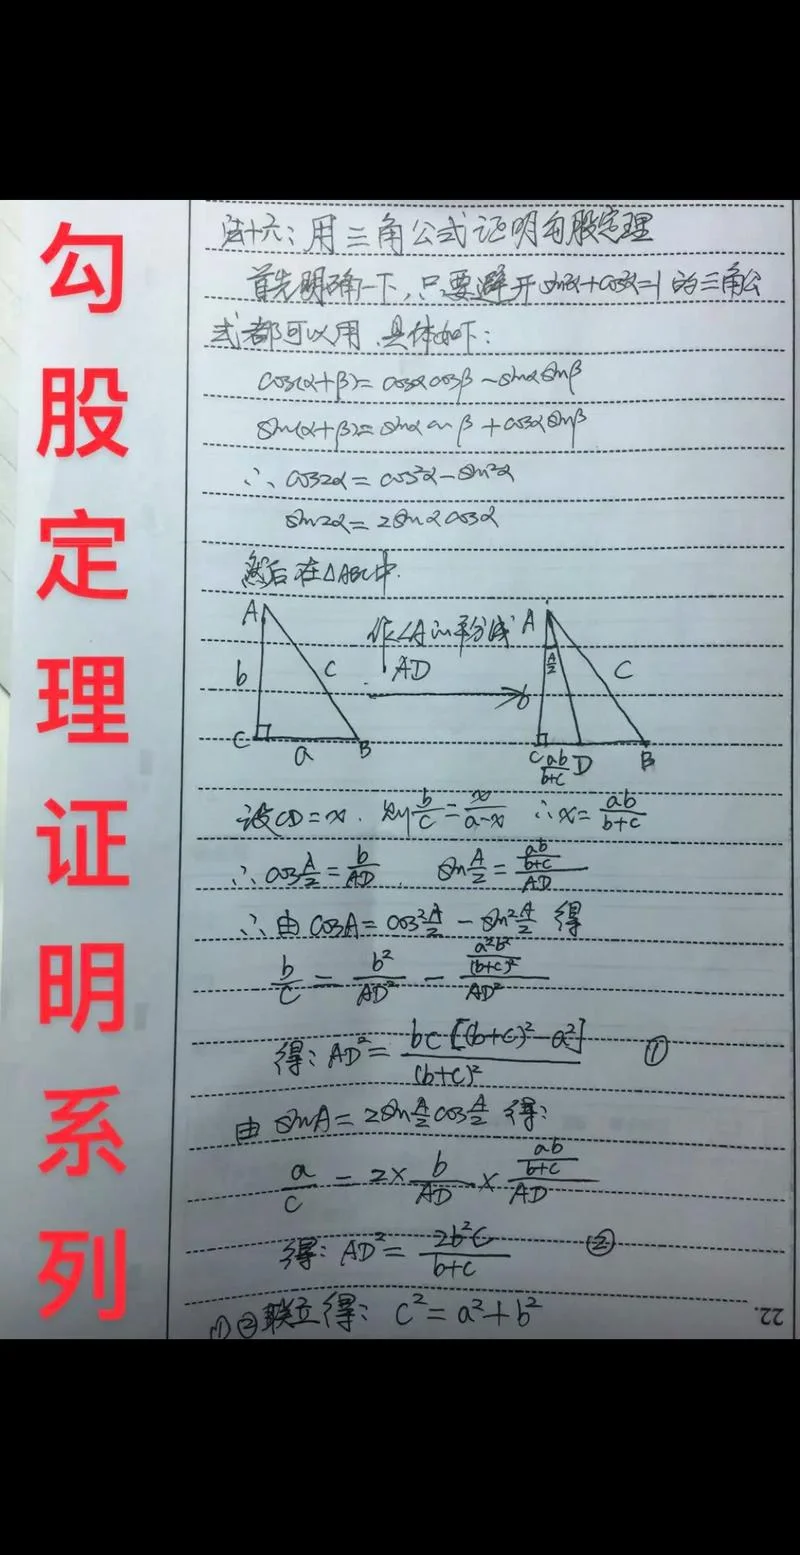 勾股定理证明系列
法十六：用三角公式证明勾股定理
首先明确一下，只要避开sin²α+cos²α=1的三角公
式都可以用，具体如下：
cos(α+β)=cosαcosβ-sinαsinβ
sin(α+β)=sinαcosβ+cosαsinβ
∴cos2α=cos²α-sin²α
sin2α=2sinαcosα
然后在△ABC中.
A b c C a B
作∠A的平分线
AD
A A/2 b c C ab/(b+c) D B
设CD=x. 则b/c=x/(a-x) ∴x=ab/(b+c)
∴cos A/2=b/AD, sin A/2=(ab/(b+c))/AD
∴由cosA=cos² A/2-sin² A/2 得
b/c=b²/AD²-(a²b²/(b+c)²)/AD²
得：AD²=bc[(b+c)²-a²]/(b+c)² ①
由sinA=2sin A/2 cos A/2 得：
a/c=2×b/AD×(ab/(b+c))/AD
得：AD²=2b²c/(b+c) ②
①②联立得：c²=a²+b²
22.